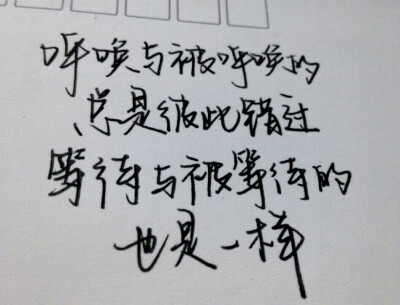 呼唤与被呼唤的
总是彼此错过
等待与被等待的
也是一样